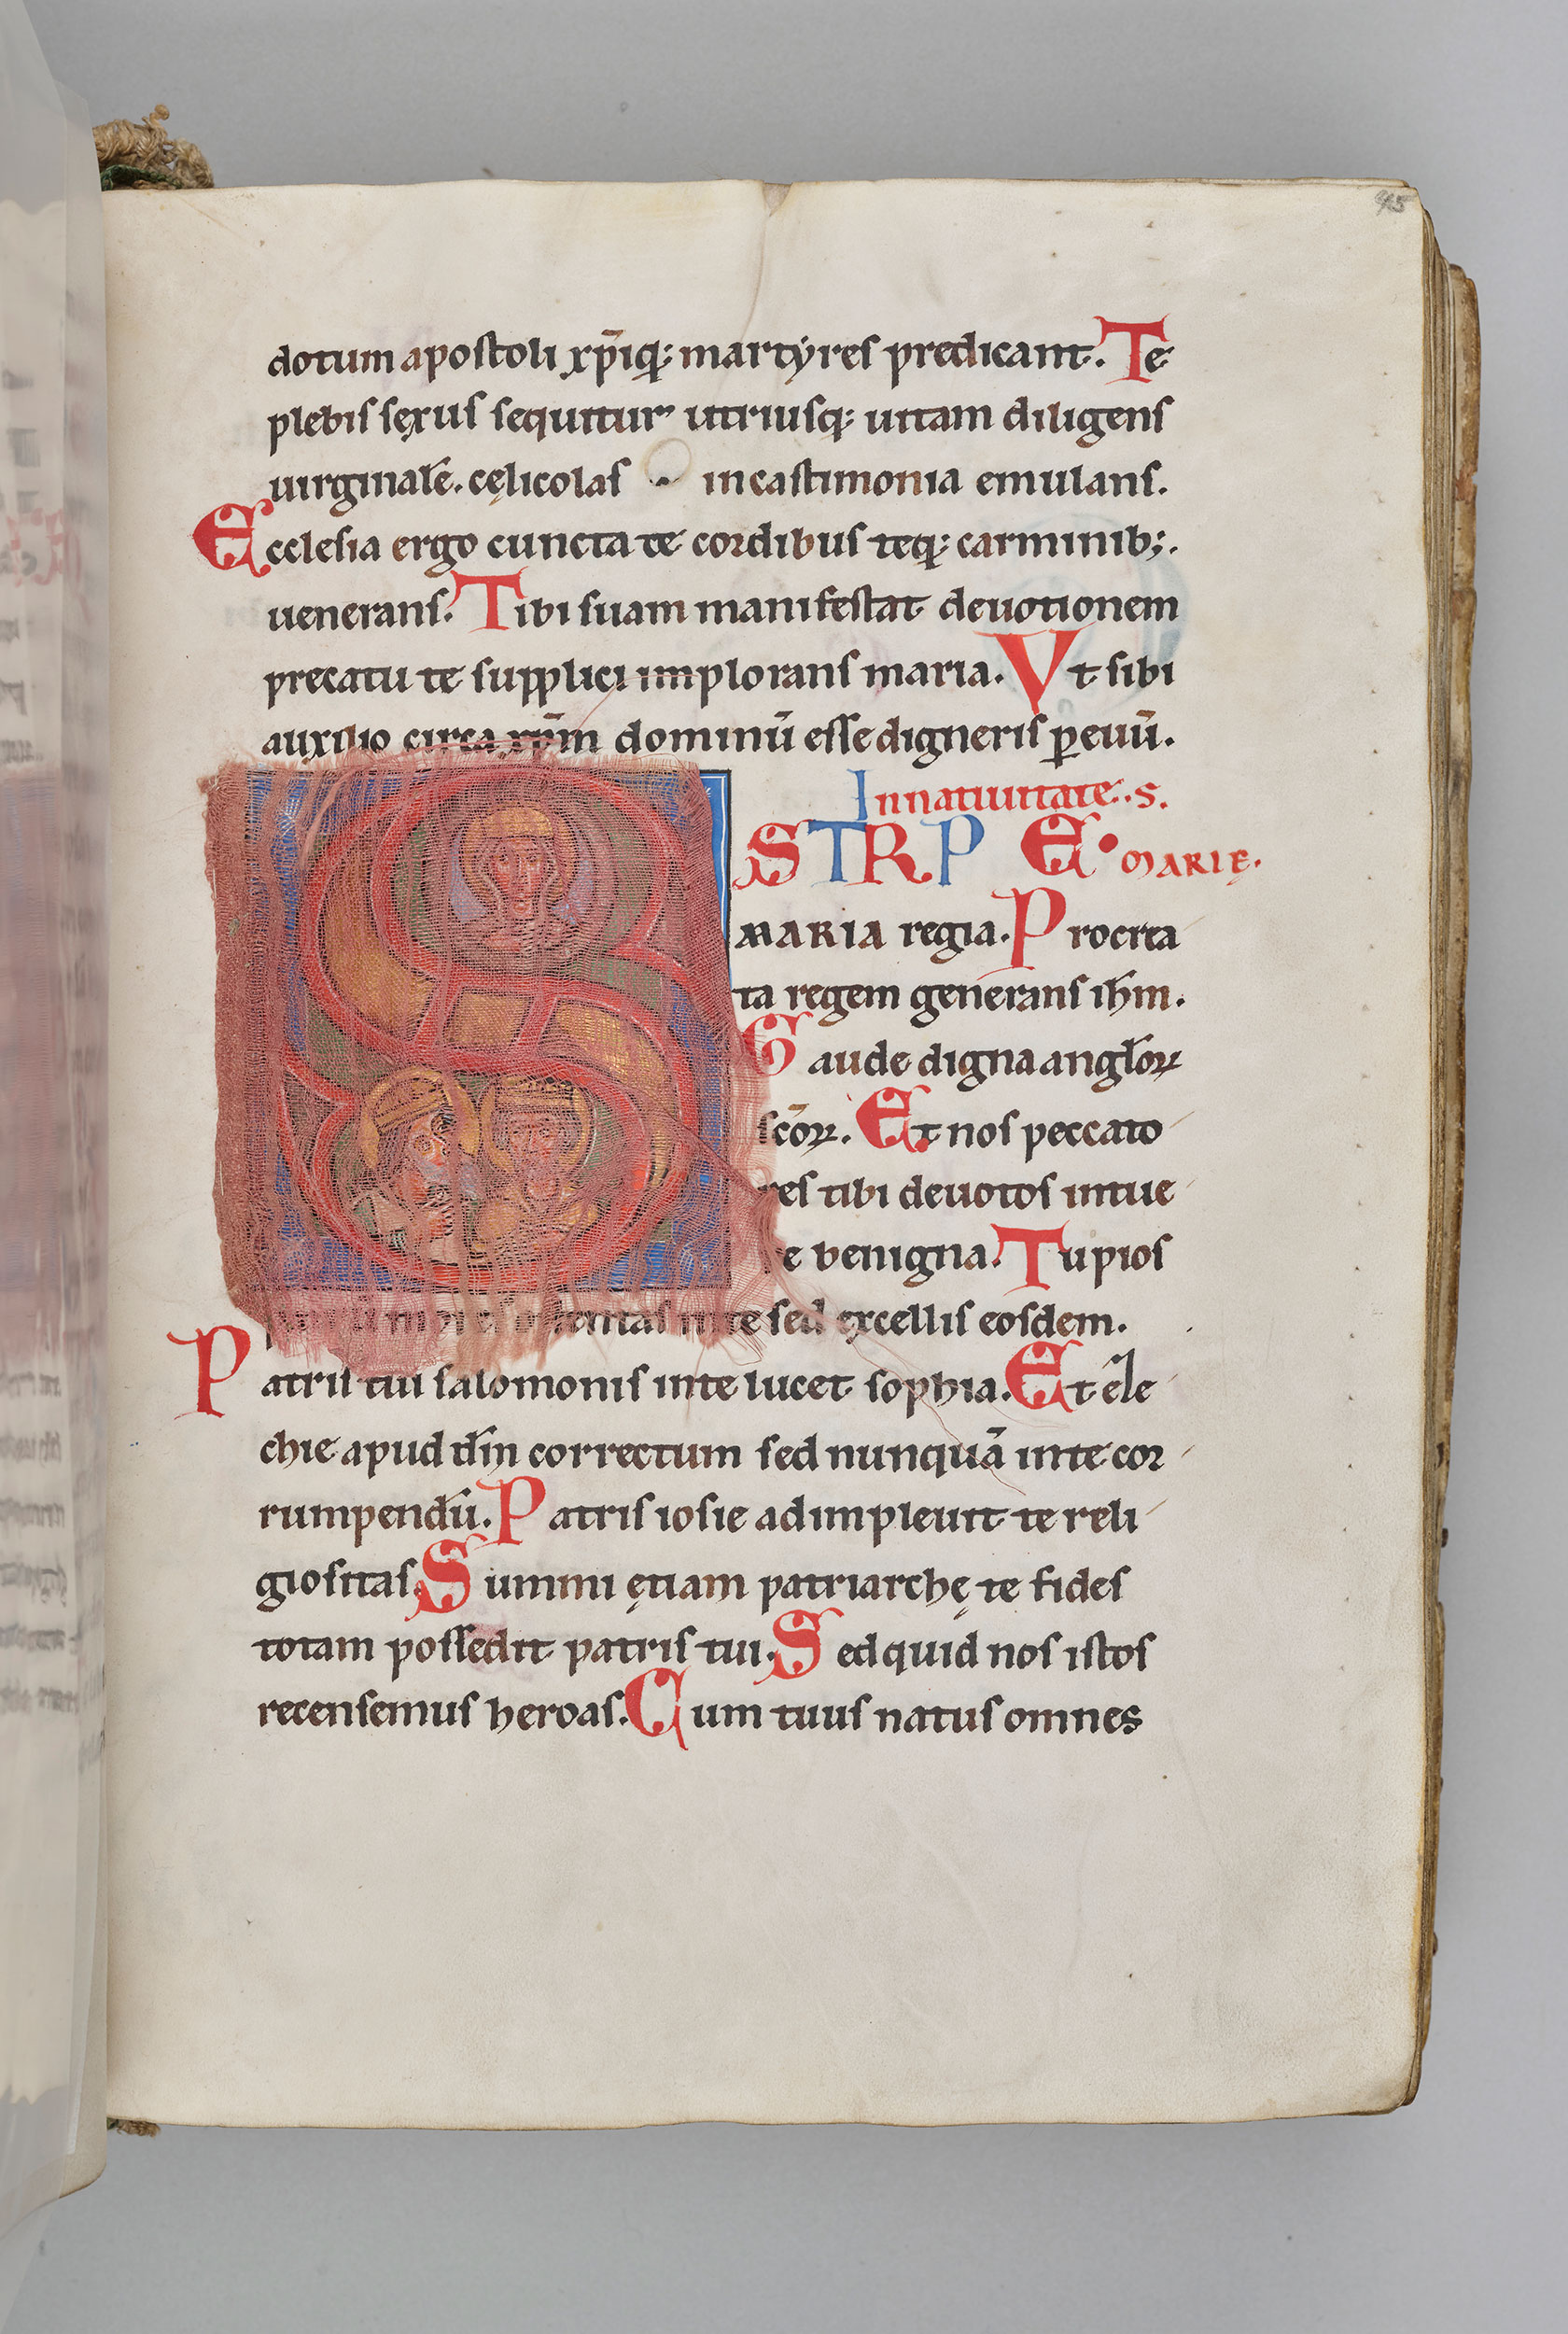 95
dotum apostoli xp̄iq; martyres predicant. Te
plebis sęxus sequitur utriusq; uitam diligens
uirginalē. cęlicolas in castimonia emulans.
Ecclesia ergo cuncta te cordibus teq; carminib;.
uenerans. Tibi suam manifestat deuotionem
precatu te supplici implorans maria. Vt sibi
auxilio circa xp̄m dominū esse digneris p̱ euū.
In natiuitate. s.
STRP E. MARIĘ.
MARIA regia. Procrea
ta regem generans ih̄m.
Gaude digna angl̄oꝝ
scōꝝ. Et nos peccato
res tibi deuotos intue
re benigna. Tu pios
te sed excellis eosdem.
Patris tui salomonis in te lucet sophia. Et
chie apud dm̄ correctum sed nunquā in te cor
rumpendū. Patris iosie adimpleuit te reli
giositas. Summi ętiam patriarchę te fides
totam possedit patris tui. Sed quid nos istos
recensemus heroas. Cum tuus natus omnes